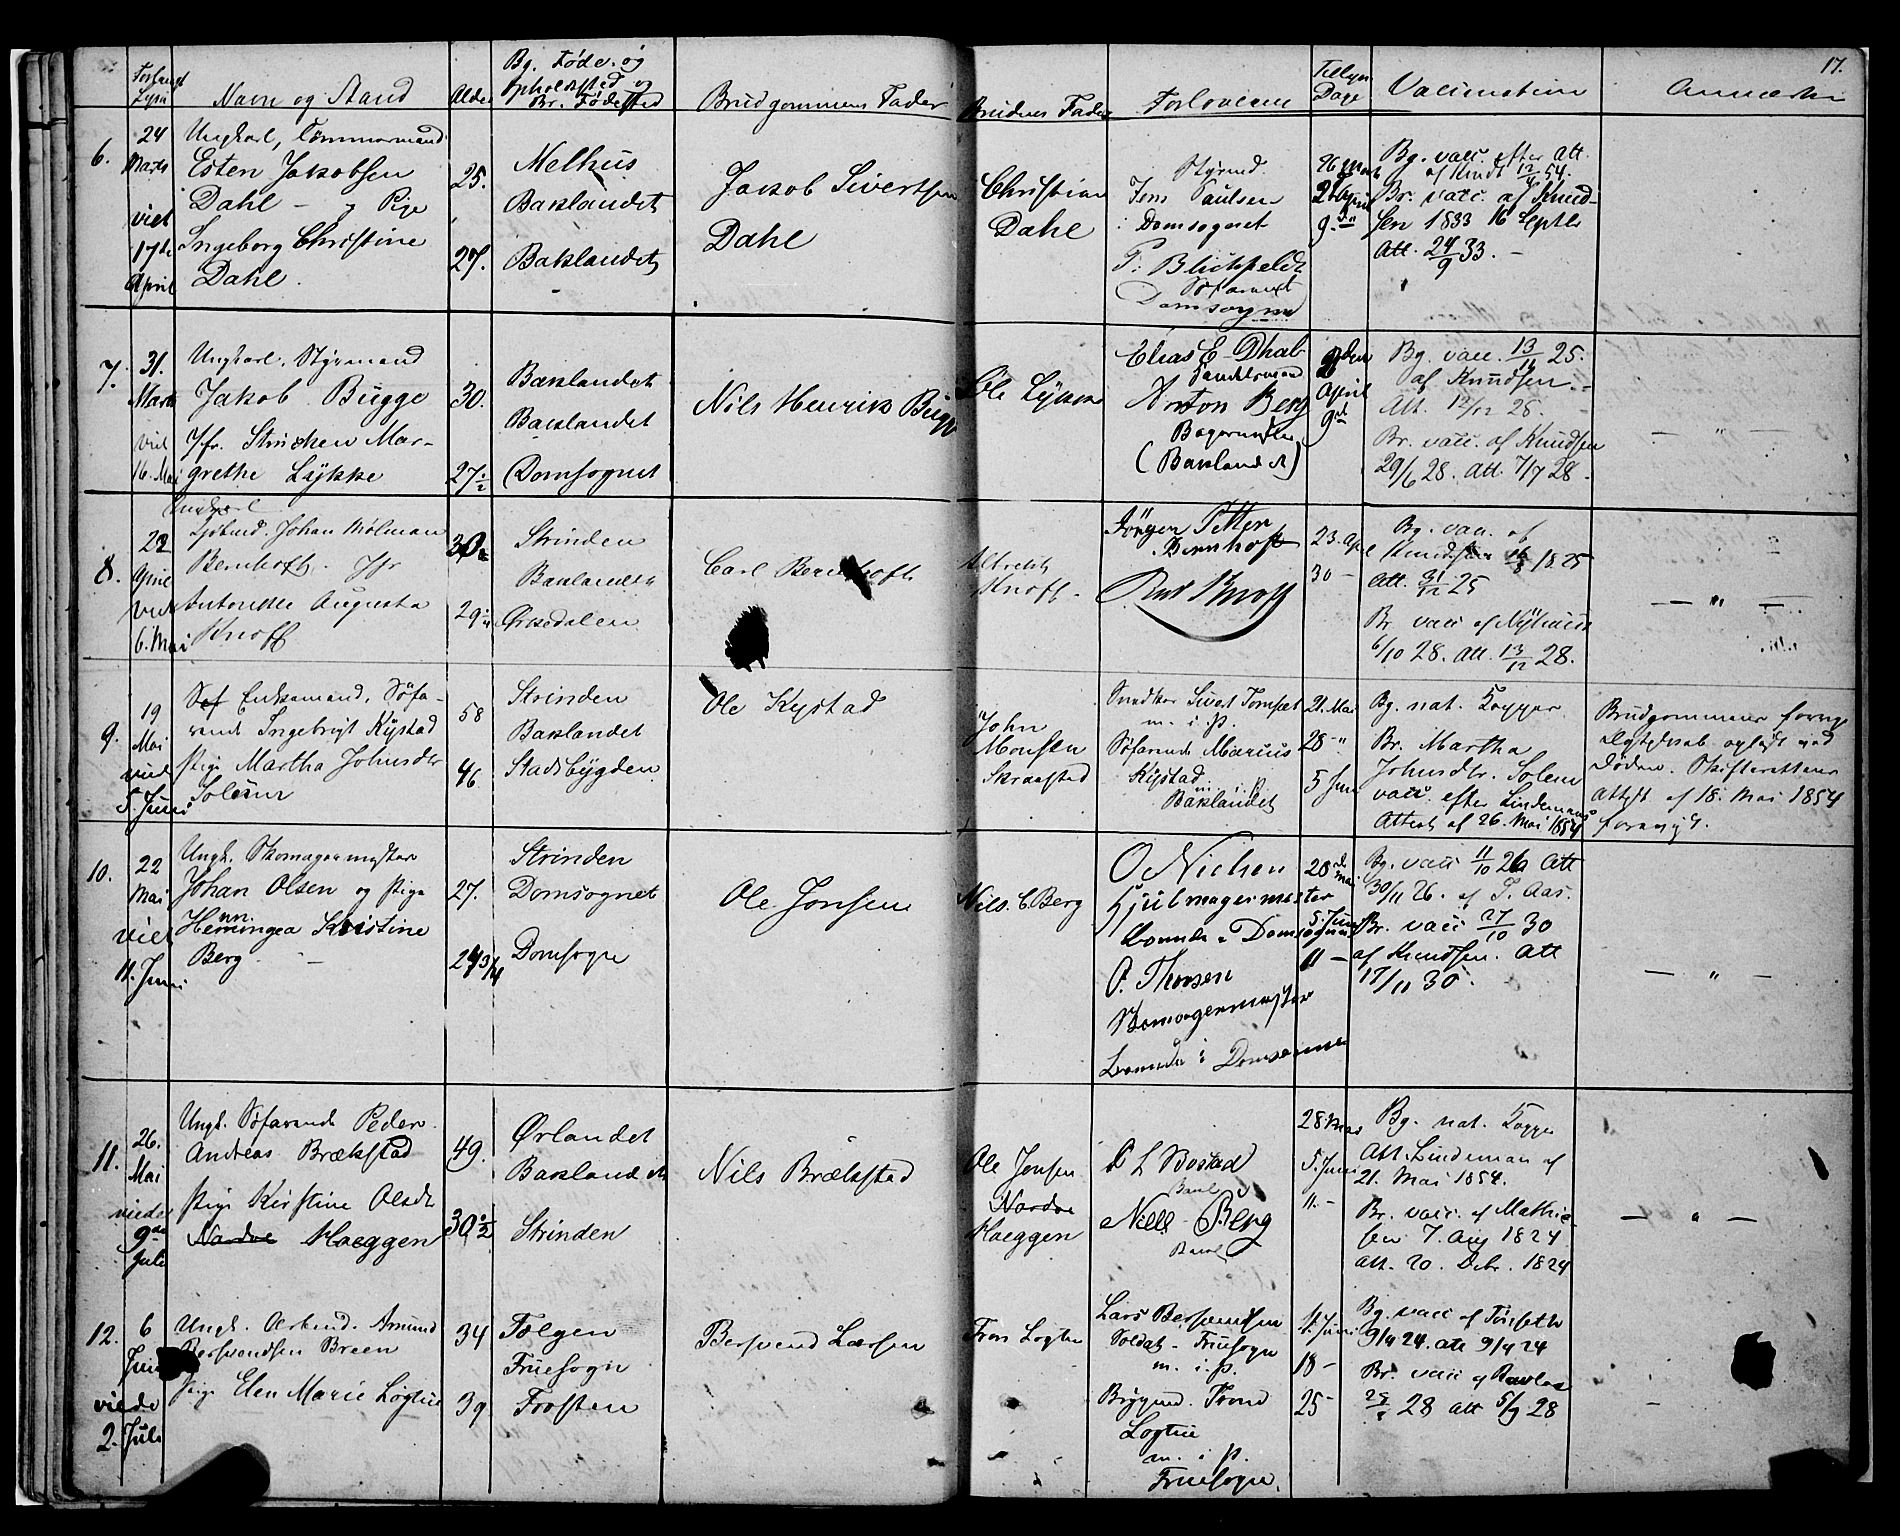 17.
Navn og Stand
Alder
Bg. Føde- og
Opholdssted og
Br. Fødested
Brudgommens Fader
Brudens Fader
Forlovere
Tillysn
Dage
Vaccination
6.
24
Marts
viet
17de
April
Ungkarl, Tømmermand
Esten Jakobsen
Dahl - og Pige
Ingeborg Christine
Dahl.
25.
27.
Melhus
Baklandet
Baklandet
Jakob Sivertsen
Dahl
Christian
Dahl
Styrmd.
Jens Paulsen
Domsognet
P. Blichfeldt
Søfarende
Domsogne
26 Marts
2 April
9 "
Bg. vacc. efter Att.
Br. vacc. af Knud-
sen 1833 16 Septbr
Att. 24/9 33.
7.
31.
Marts
viet
16. Mai
Ungkarl. Styrmand
Jakob Bugge
Jfr. Stinchen Mar-
grethe Lykke
30.
27 1/2
Baklandet
Baklandet
Domsognet
Nils Henrik Bugge
Ole Lykke
Elias E. Dhal
Handelsmand
Anton Berg
Bagermester
(Baklandet)
2den
April
9d
Bg. vacc. 13/11 25.
af Knudsen.
Att. 12/12 28.
Br. vacc. af Knudsen
29/6 28. Att 7/7 28.
— " —
8.
22
April
viet
6. Mai
Ungkarl
Johan Molman
Bernhoft. Jfr
Antonette Augusta
Knoff
30
29
Strinden
Baklandet
Ørkedalen
Carl Bernhoft
Knoff.
Jørgen Petter
Bernhoft
Knoff
23. Apr
30 -
Bg. vacc. af
Knudsen 1825
Att. 31/12 25
Br. vacc af Nyhuus
6/10 28. Att. 13/12 28.
— " —
9.
19
Mai
viet
5. Juni
Enkemand, Søfa-
rende Ingebrigt Kystad
Pige Martha Johnsdtr
Solem
58
46
Strinden
Baklandet
Stadsbygden
Ole Kystad
John
Monsen
Skraastad
Snedker Sivert
m. i. p.
Søfarende Marius
Kystad
m. i. p.
Baklandet
21. Mai
28 - "
5 Juni
Bg. nat. Kopper
Br. Martha
Johnsdtr. Solem
vacc. efter Lindemans
Attest af 26. Mai 1854
Brudgommens forrige
Ægteskab opløst ved
Døden. Skifterettens
Attest af 18. Mai 1854
forevist.
10.
22
Mai
viet
11. Juni
Ungk. Skomagermester
Johan Olsen og Pige
Henningea Kristine
Berg.
27.
24 3/4
Strinden
Domsognet
Domsogn
Ole Jonsen
Nils. C. Berg
O Nielsen
Hjulmagermester
boende i Domsognet
O. Thorsen
Skomagermester
boende i Domsognet
28 Mai
5. Juni
11 -
Bg. vacc 11/10 26 Att
30/11 26. af T. Aas.
Br. vacc 27/10 30
af Knudsen. Att
17/11 30.
— " —
11.
26.
Mai
viede
9de
Juli
Ungk. Søfarende Peder
Andreas Brækstad
Pige Kirstine Olsdtr
Nardoe Haeggen
49.
30 1/2
Ørlandet
Baklandet
Strinden
Nils Brækstad
Ole Jonsen
Nardoe
Haeggen
O L Bostad
Bakl
Niels Berg
Bakl
28 Mai
5. Juni
11. -
Bg. nat. Kopper
Att. Lindeman af
21. Mai 1854.
Br. vacc. af Mathie-
sen 7. Aug 1824
Att. 20. Debr. 1824
— " —
12.
6
Juni
viede
2. Juli
Ungk. Arbmd. Amund
Bersvendsen Breen
Pige Elen Marie Løgtue
34
39
Tolgen
Fruesogn
Frosten
Bersvend Larsen
Lars Bersvendsen
Soldat - Fruesogn
m. i. p.
Løgtue
m. i. p.
Fruesogn.
11. Juni
18 -
25 -
Bg. vacc af Tønseth
9/4 24. att 9/4 24
Br. vacc af
28 att 5/7 28